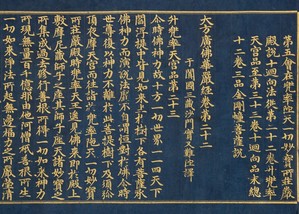 第五會在兜率陀天一切妙寶所莊嚴
殿說十迴向從第二十二卷升兜率
天宮品至第三十三卷十迴向品末總
十二卷三品金剛幢菩薩說
大方廣佛華嚴經卷第二十二
于闐國三藏沙門實叉難陀譯
升兜率天宮品第二十三
尒時佛神力故十方一切世界一一四天下
閻浮提中皆見如來坐於樹下各有菩薩承
佛神力而演說法靡不自謂恒對於佛尒時
世尊復以神力不離於此菩提樹下及須弥
頂夜摩天宮而往詣於兜率陀天一切妙寶
所莊嚴殿時兜率天王遙見佛來即於殿上
敷摩尼藏師子之座其師子座天諸妙寶之
所集成過去修行善根所得一切如來神力
所現無量百千億那由他阿僧祇善根所生
一切如來淨法所起無邊福力之所嚴瑩清